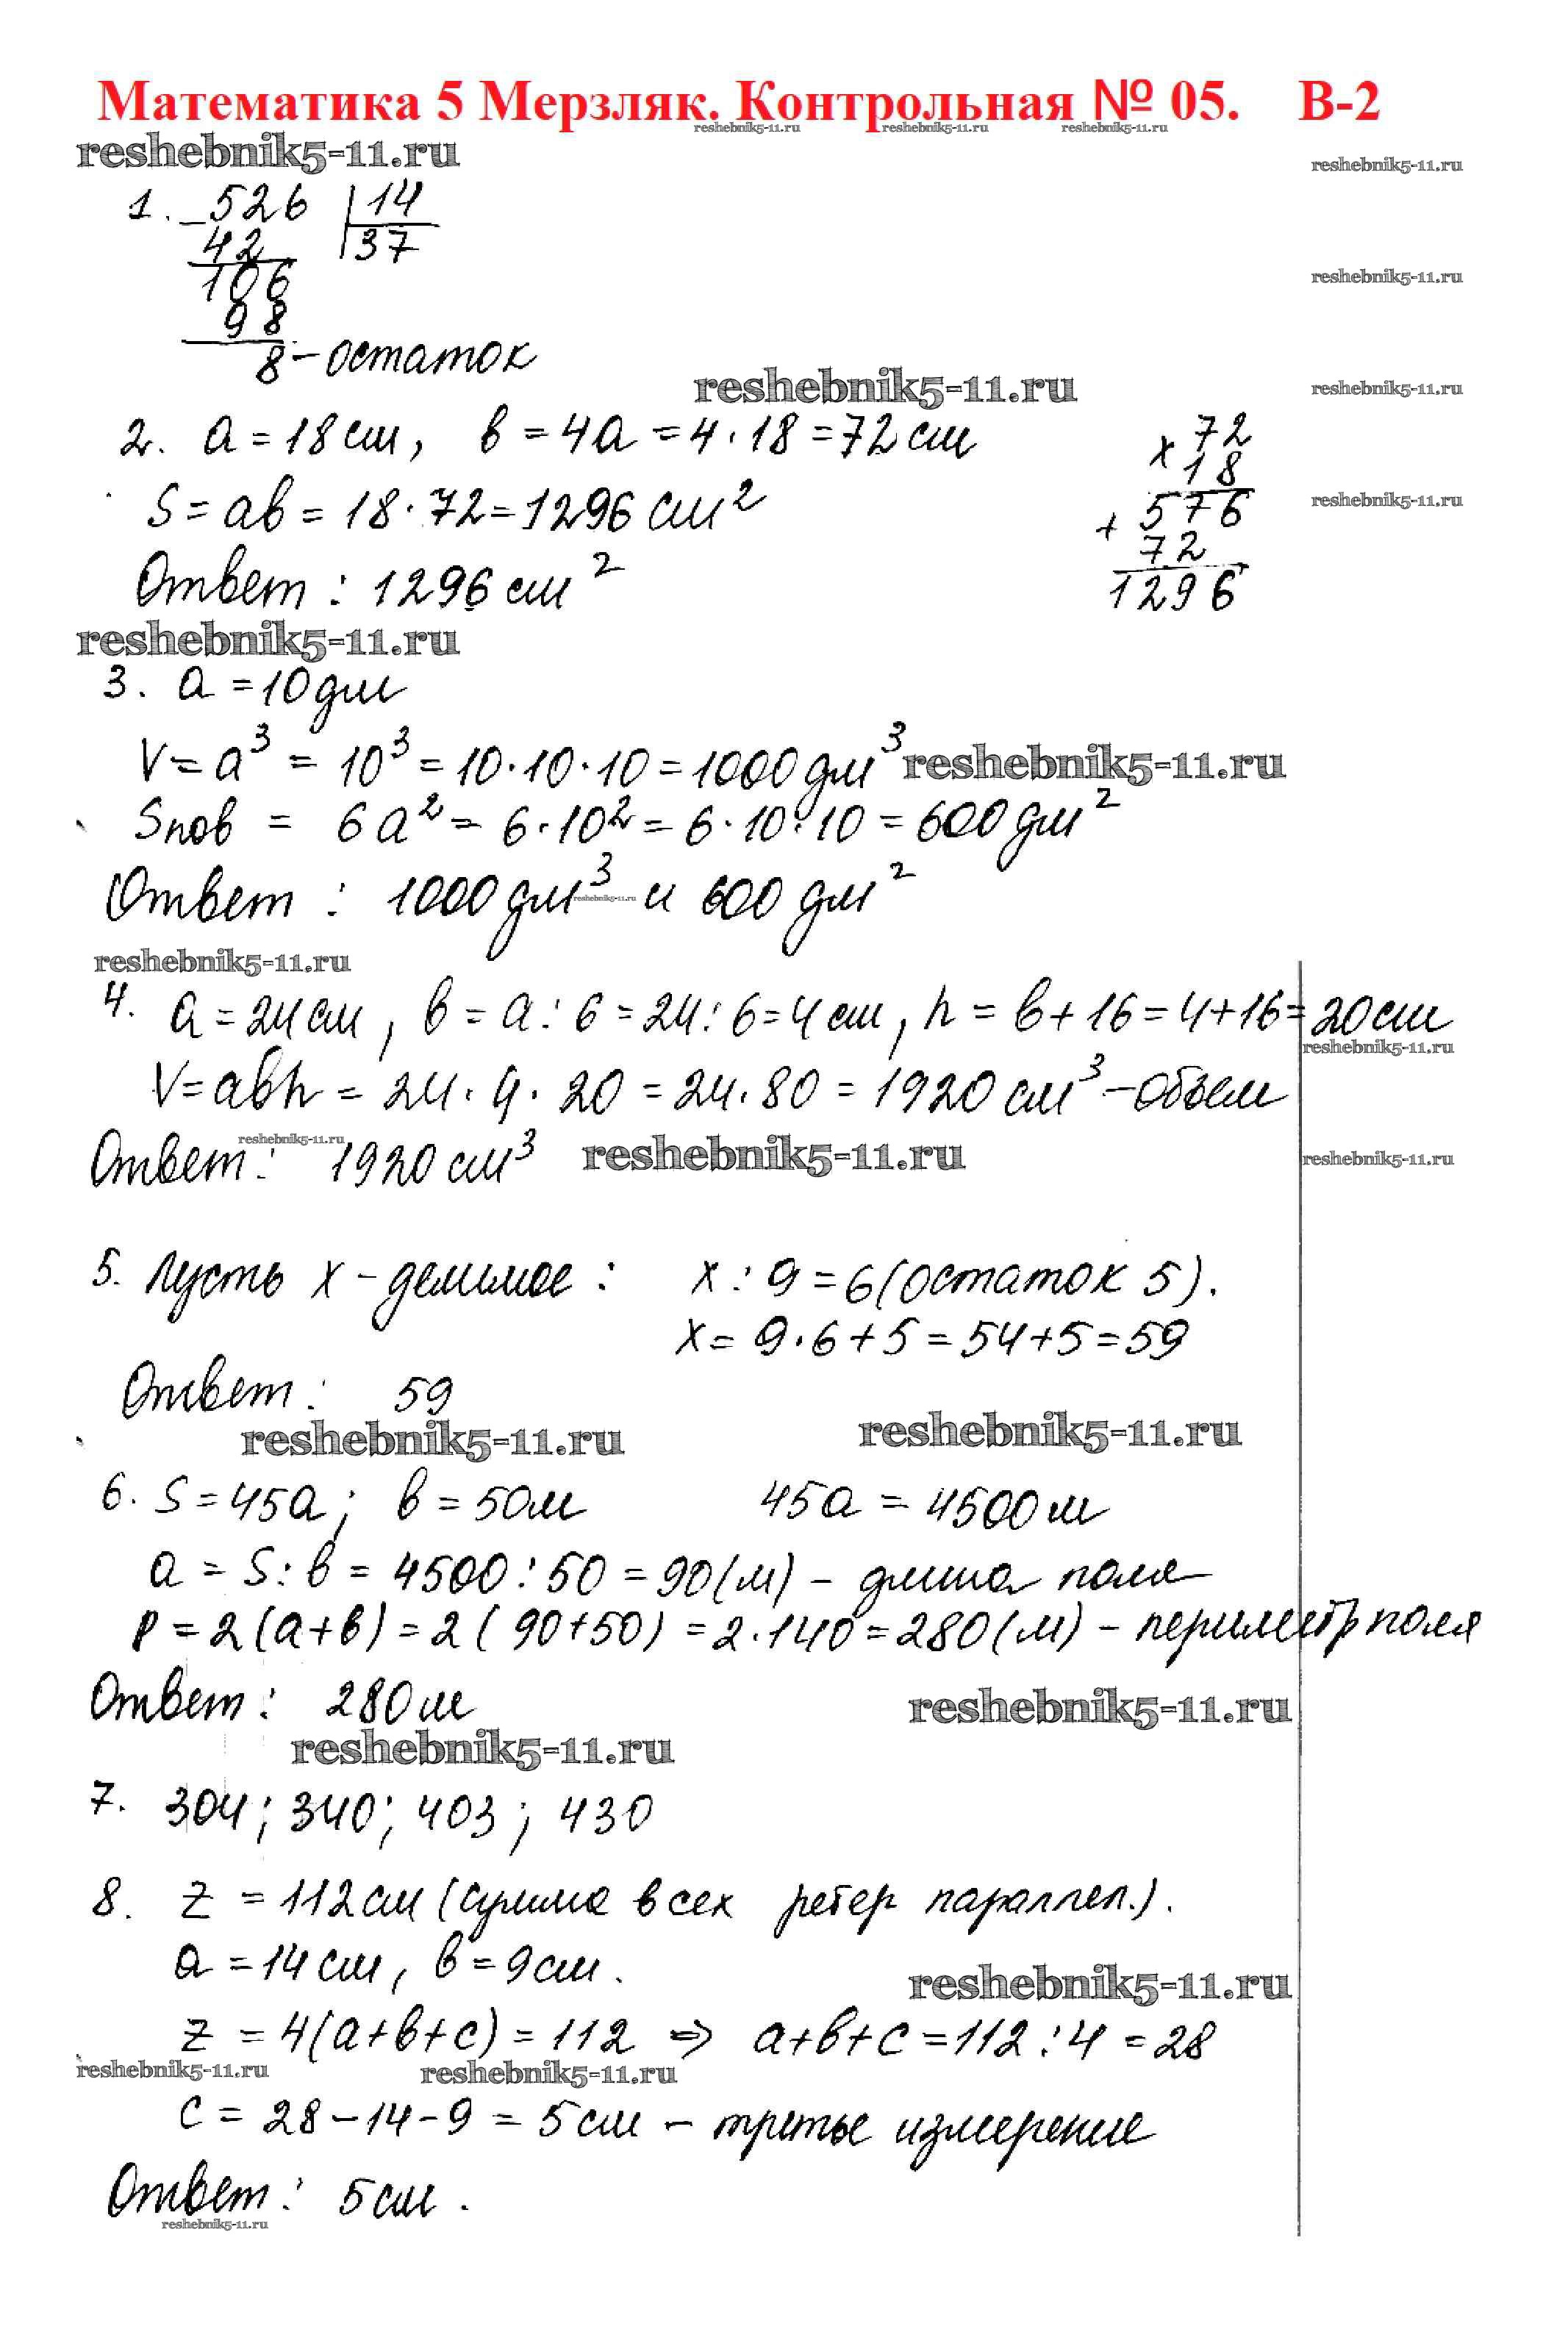 Математика 5 Мерзляк. Контрольная № 05. В-2
reshebnik5-11.ru reshebnik5-11.ru reshebnik5-11.ru
reshebnik5-11.ru reshebnik5-11.ru
1. _526 |14
42 37
106 reshebnik5-11.ru
98
8 - остаток
reshebnik5-11.ru reshebnik5-11.ru
2. a = 18 см, в = 4a = 4 · 18 = 72 см × 72
18
S = aв = 18 · 72 = 1296 см² + 576 reshebnik5-11.ru
72
Ответ : 1296 см² 1296
reshebnik5-11.ru
3. a = 10 дм
V = a³ = 10³ = 10 · 10 · 10 = 1000 дм³ reshebnik5-11.ru
Sпов = 6a² = 6 · 10² = 6 · 10 · 10 = 600 дм²
Ответ : 1000 дм³ reshebnik5-11.ru и 600 дм²
reshebnik5-11.ru
4. a = 24 см, в = a : 6 = 24 : 6 = 4 см, h = в + 16 = 4 + 16 = 20 см
reshebnik5-11.ru
V = aвh = 24 · 4 · 20 = 24 · 80 = 1920 см³ - объем
reshebnik5-11.ru
Ответ : 1920 см³ reshebnik5-11.ru reshebnik5-11.ru
5. Пусть x - делимое : x : 9 = 6 (остаток 5).
x = 9 · 6 + 5 = 54 + 5 = 59
Ответ : 59
reshebnik5-11.ru reshebnik5-11.ru
6. S = 45a ; в = 50 м 45a = 4500 м
a = S : в = 4500 : 50 = 90 (м) - длина поля
P = 2 (a + в) = 2 ( 90 + 50) = 2 · 140 = 280 (м) - периметр поля
Ответ : 280 м reshebnik5-11.ru
reshebnik5-11.ru
7. 304 ; 340 ; 403 ; 430
8. z = 112 см (сумма всех ребер параллел.).
a = 14 см, в = 9 см.
reshebnik5-11.ru
z = 4(a + в + c) = 112 ⇒ a + в + c = 112 : 4 = 28
reshebnik5-11.ru reshebnik5-11.ru
c = 28 - 14 - 9 = 5 см - третье измерение
Ответ : 5 см .
reshebnik5-11.ru